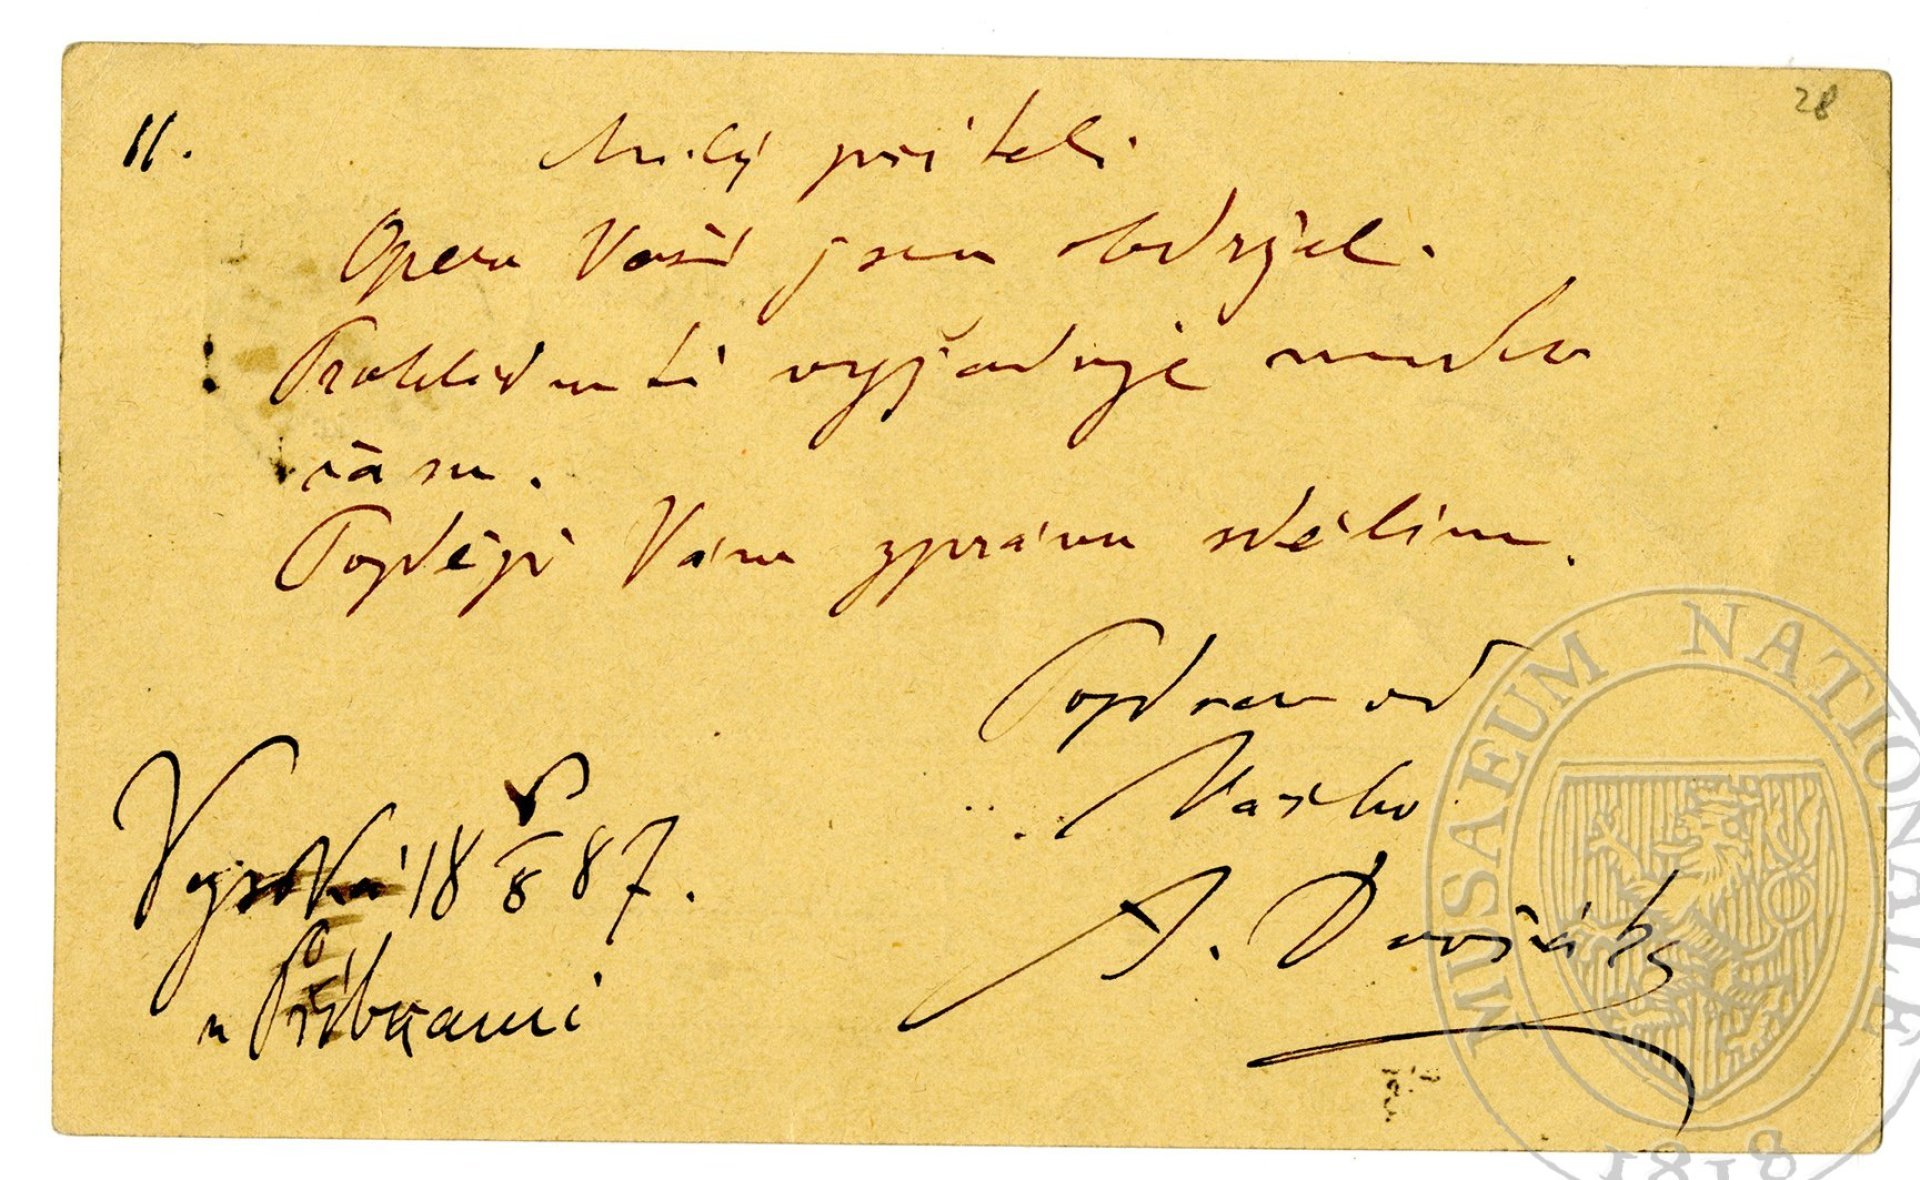 28
11.
Milý příteli
Operu Vaši jsem obdržel.
Prohlídnutí vyžaduje mnoho
času.
Později Vám zprávu sdělím.
Pozdrav od
Vašeho
A. Dvořák
Vysoká 18/8 87.
u Příbrami
MUSAEUM NATIONALE
1818